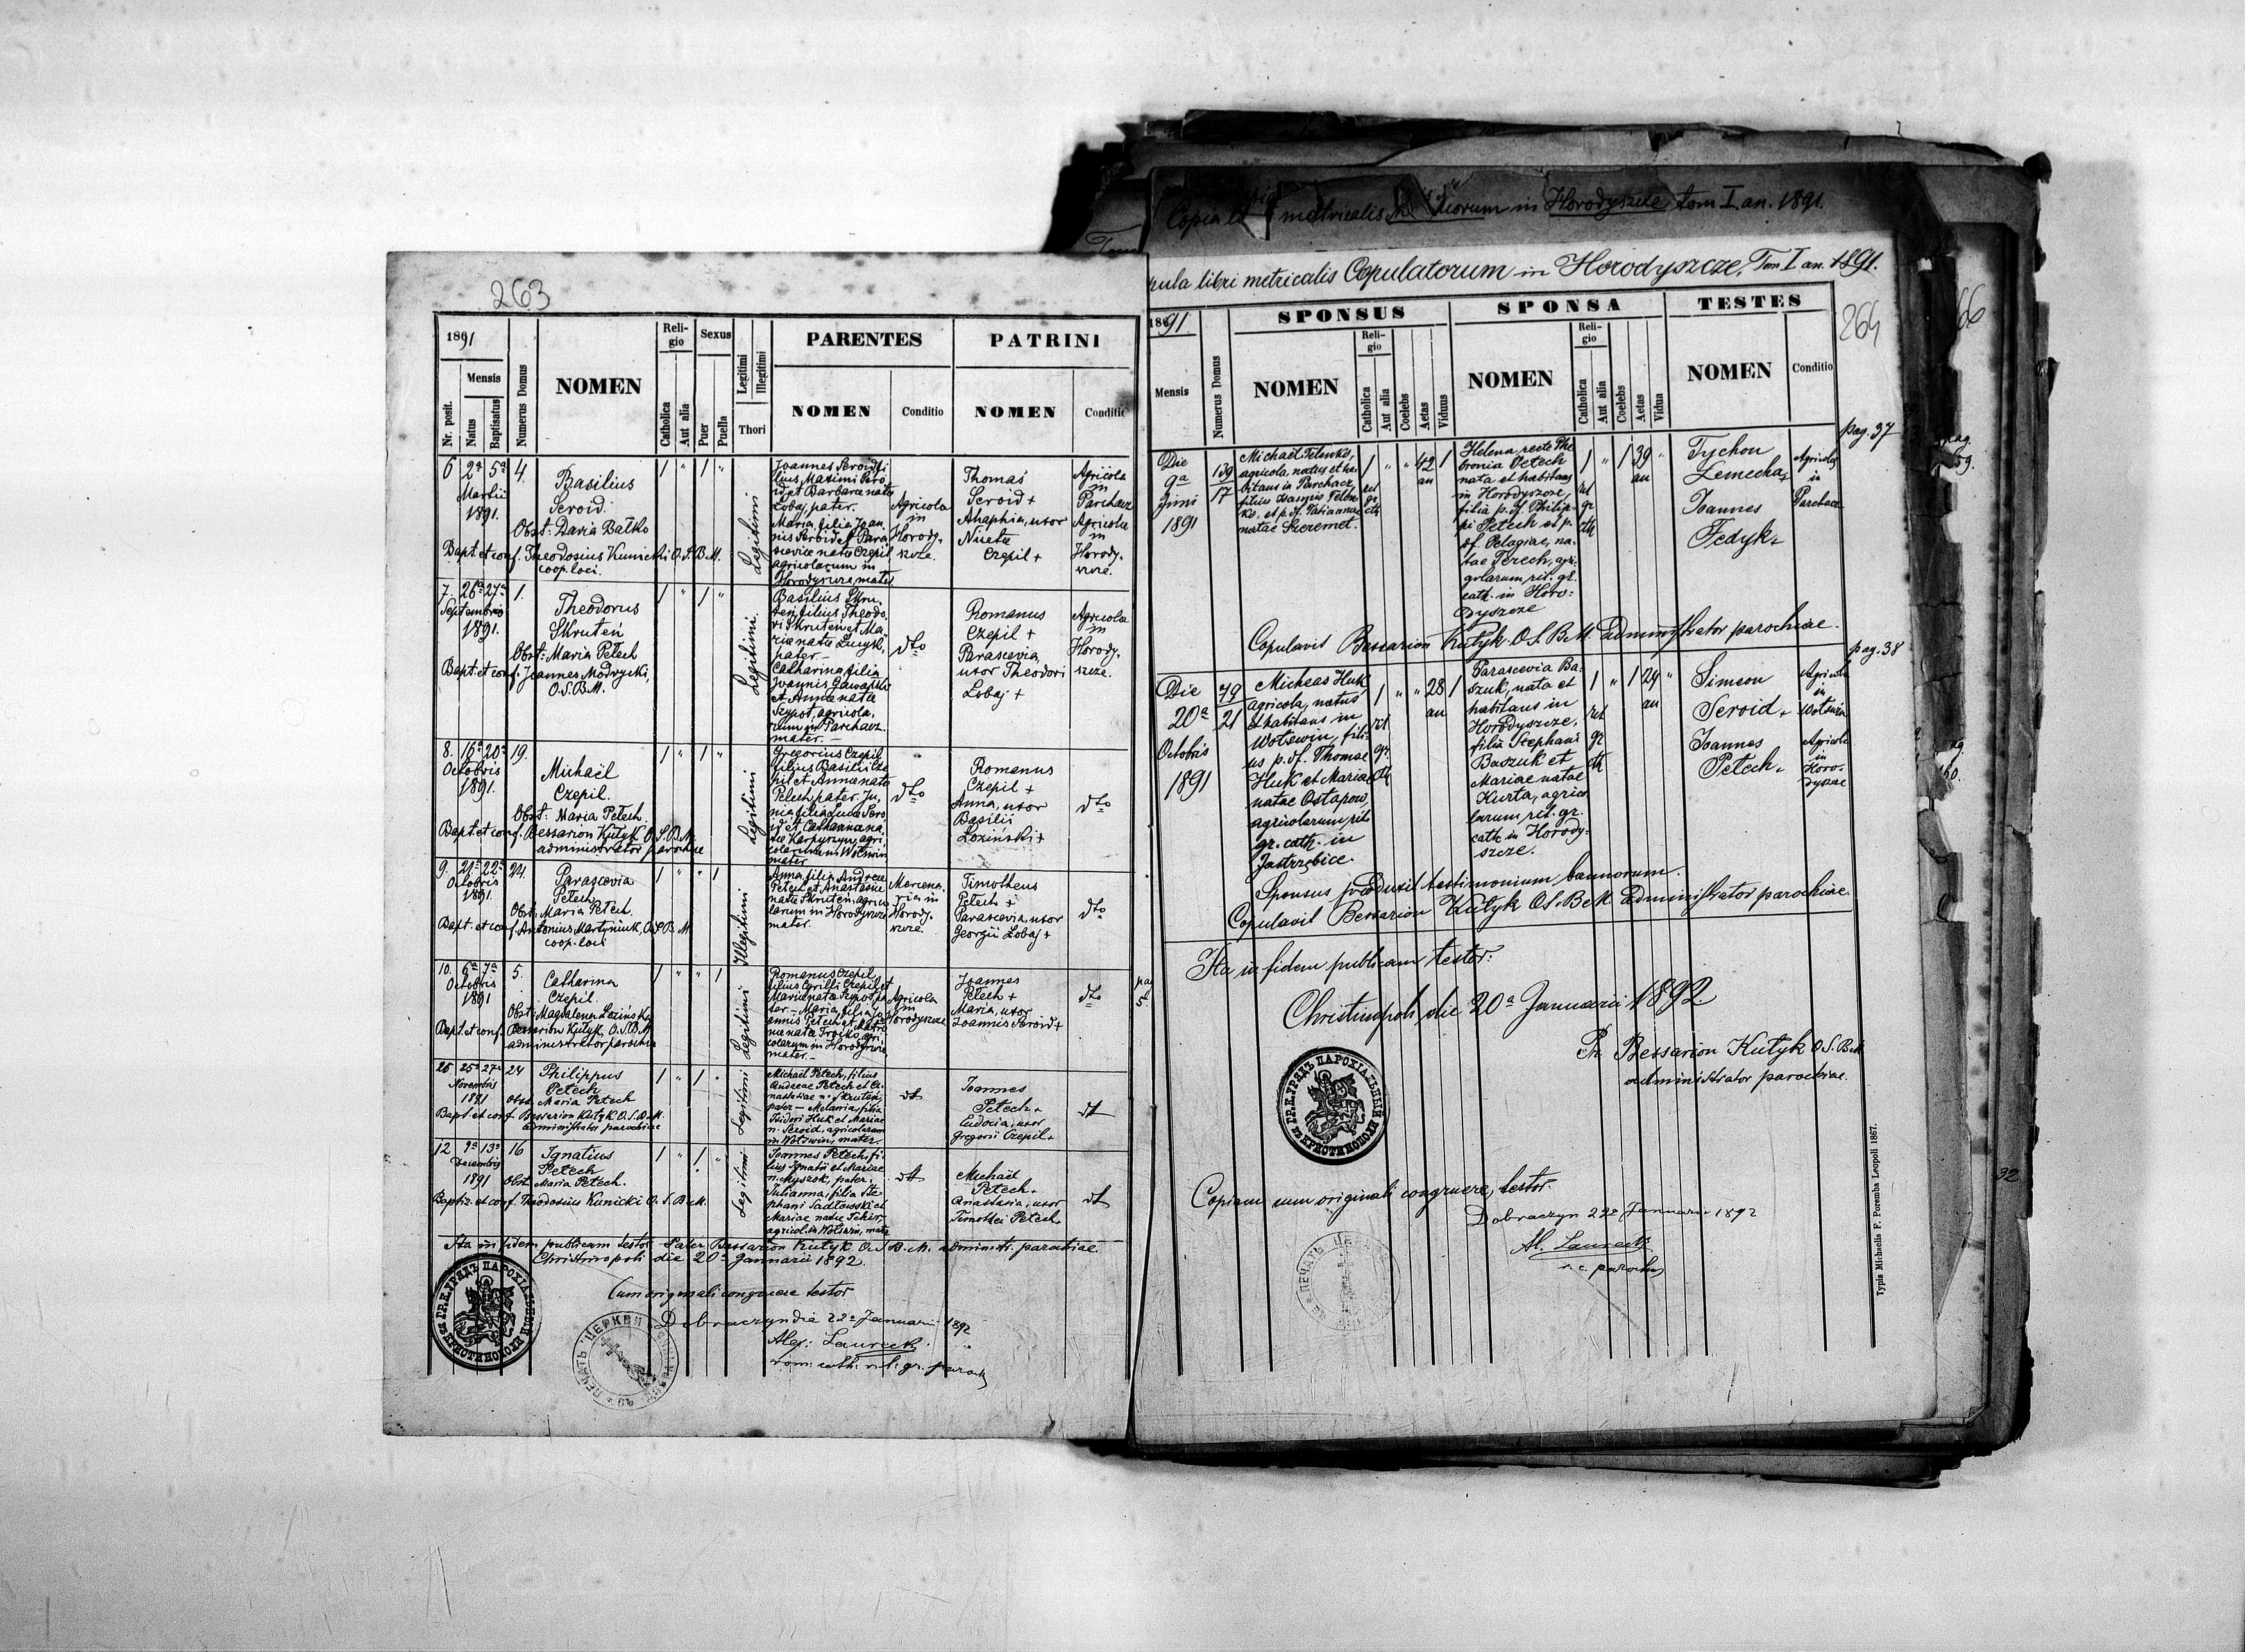 263
1891
Mensis
Nr. posit.
Natus
Baptisatus
Numerus Domus
NOMEN
Religio
Catholica
Aut alia
Sexus
Puer
Puella
Legitimi
Illegitimi
Thori
PARENTES
NOMEN
Conditio
PATRINI
NOMEN
Conditio
6 2a 5a 4.
Martii
1891.
Basilius
Seroid.
Obst: Daria Batko
Bapt. et conf. Theodosius Kunicki O.S.B.M.
coop. loci.
1 " 1 "
Legitimi
Joannes Seroid fi
lius Maximi Sero
id et Barbarae natae
Lobaj, pater.
Maria, filia Joan
nis Seroid et Para
sceviae natae Czepil
agricolarum in
Horodyszcze mater
Agricola
in
Horody-
szcze.
Thomas
Seroid +
Ahaphia, uxor
Nicetae
Czepil +
Agricola
in
Parchacz
Agricola
in
Horody-
szcze.
7. 26a 27a 1.
Septembris
1891.
Theodorus
Skruteń
Obst: Maria Petech
Bapt. et conf. Joannes Modrycki,
O.S.B.M.
1 " 1 "
Legitimi.
Basilius Skru
ten, filius Theodo
ri Skruteń et Ma
riae natae Lucyk,
pater.-
Catharina filia
Joannis
et Annae natae
Szypot, agricola-
rum in Parchacz.
mater.-
dto
Romanus
Czepil +
Parascevia
uxor Theodori
Lobaj +
Agricolae
in
Horody-
szcze.
8. 16a 20a 19.
Octobris
1891.
Michaël
Czepil.
Obst: Maria Petech.
Bapt. et conf. Bessarion Kutyk O.S.B.M.
administrator parochiae
1 " 1 "
Legitimi
Gregorius Czepil
filius Basilii Cze
pil et Annae natae
Petech, pater. Ju
nia filia Lucae Sero
id et Catharinae na
tae Karpyszyn, agri
colarum in Wolswin
mater
dto
Romanus
Czepil +
Anna, uxor
Basilii
Łoziński +
dto
9. 21a 22a 24.
Octobris
1891.
Parascevia
Petech
Obst: Maria Petech.
Bapt. et conf. Antonius Martyniuk, O.S.B.M.
coop. loci
1 " " 1
Illegitimi
Anna, filia Andreae
Petech et Anastasiae
natae Skruteń, agrico
larum in Horodyszcze
mater.
Mercena-
ria in
Horody-
szcze.
Timotheus
Petech +
Parascevia, uxor
Georgii Lobaj +
dto
10. 6a 7a 5.
Octobris
1891
Catharina
Czepil.
Obst: Magdalena Łozińska
Bapt. et conf. Bessarion Kutyk O.S.B.M.
administrator parochiae
1 " " 1
Legitimi
Romanus Czepil,
filius Cyrilli Czepil et
Mariae natae Szypot pa
ter - Maria, filia Jo
annis Petech et
nae natae Trojko, agri
colarum in Horodyszcze
mater.-
Agricola
in
Horodyszcze
Joannes
Petech +
Maria, uxor
Joannis Seroid +
dto
25a 27a 24
Novembris
1891
Philippus
Petech
Obst. Maria Petech
Bapt. et conf. Bessarion Kutyk O.S.B.M.
administrator parochiae
1 " 1 "
Legitimi
Michaël Petech, filius
Andreae Petech et A-
nastasiae n. Skruteń,
pater - Melania, filia
Isidori Huk et Mariae
n. Seroid, agricolarum
in Wolswin, mater.
dt
Joannes
Petech +
Eudocia, uxor
Gregorii Czepil +
dt
12 9a 13a 16
Decembris
1891
Ignatius
Petech
Obst. Maria Petech.
Baptiz. et conf. Theodosius Kunicki O.S.B.M.
1 " 1 "
Legitimi
Joannes Petech, fi-
lius Ignatii et Mariae
n. Myszok, pater.
Julianna, filia Ste
phani Sadłowski et
Mariae natae
agricol. in Wolswin, mater
dt
Michaël
Petech +
Anastasia, uxor
Timothei Petech
dt
Ita in fidem publicam testor Pater Bessarion Kutyk O.S.B.M. administr. parochiae
Christinopoli die 20a Januarii 1892.
Cum originali congruere testor
Dobraczyn die 22a Januarii 1892
Alex: Laurecki
rom: cath: rit: gr. paroch
Copia metricalis in Horodyszcze, tom I an. 1891.
libri metricalis Copulatorum in Horodyszcze, Tom I an. 1891.
264
66
1891
Mensis
Numerus Domus
SPONSUS
NOMEN
Religio
Catholica
Aut alia
Coelebs
Aetas
Viduus
SPONSA
NOMEN
Religio
Catholica
Aut alia
Coelebs
Aetas
Vidua
TESTES
NOMEN
Conditio
pag. 37
Die
9a
Junii
1891
139
17
Michaël Telenko,
agricola, natus et ha
bitans in Parchacz
filius Joannis Telen
ko, et p. df. Tatiannae
natae Szeremet.
1 " " 42 1
an
rit
gr
cth
Helena, recte Phe
bronia Petech
nata et habitans
in Horodyszcze,
filia p. df. Philip-
pi Petech et p.
df. Pelagiae, na-
tae Terech, agri-
colarum rit. gr.
cath. in Horo-
dyszcze
1 " 1 39 "
an
rit
gr
cth
Tychon
Lemecha +
Joannes
Fedyk +
Agricolae
in
Parchacz
Copulavit Bessarion Kutyk O.S.B.M. administrator parochiae.
pag. 38
Die
20a
Octobris
1891
79
21
Micheas Huk,
agricola, natus
et habitans in
Wolswin, fili-
us p. df. Thomae
Huk et Mariae
natae Ostapow,
agricolarum rit.
gr. cath. in
Jastrzębice.
1 " " 28 1
an
rit
gr
cth
Parascevia Ba-
szuk, nata et
habitans in
Horodyszcze,
filia Stephani
Baszuk et
Mariae natae
Kurta, agrico
larum rit. gr.
cath. in Horody-
szcze.
1 " 1 24 "
an
rit
gr
cth
Simeon
Seroid +
Joannes
Petech +
Agricola
in
Wolswin
Agricola
in
Horo-
dyszcze
Sponsus produxit testimonium bannorum.
Copulavit Bessarion Kutyk O.S.B.M. administrator parochiae.
Ita in fidem publicam testor:
Christinopoli, die 20a Januarii 1892.
Pr. Bessarion Kutyk O.S.B.M.
administrator parochiae.
Copiam cum originali congruere, testor.
Dobraczyn 22a Januarii 1892
Al. Laurecki
parochus
Typis Michaelis F. Poremba Leopoli 1867.
32
ГР. К. УРЯДЪ ПАРОХІАЛЬНЫЙ
ВЪ КРИСТИНОПОЛИ
ПЕЧАТЬ ЦЕРКВИ